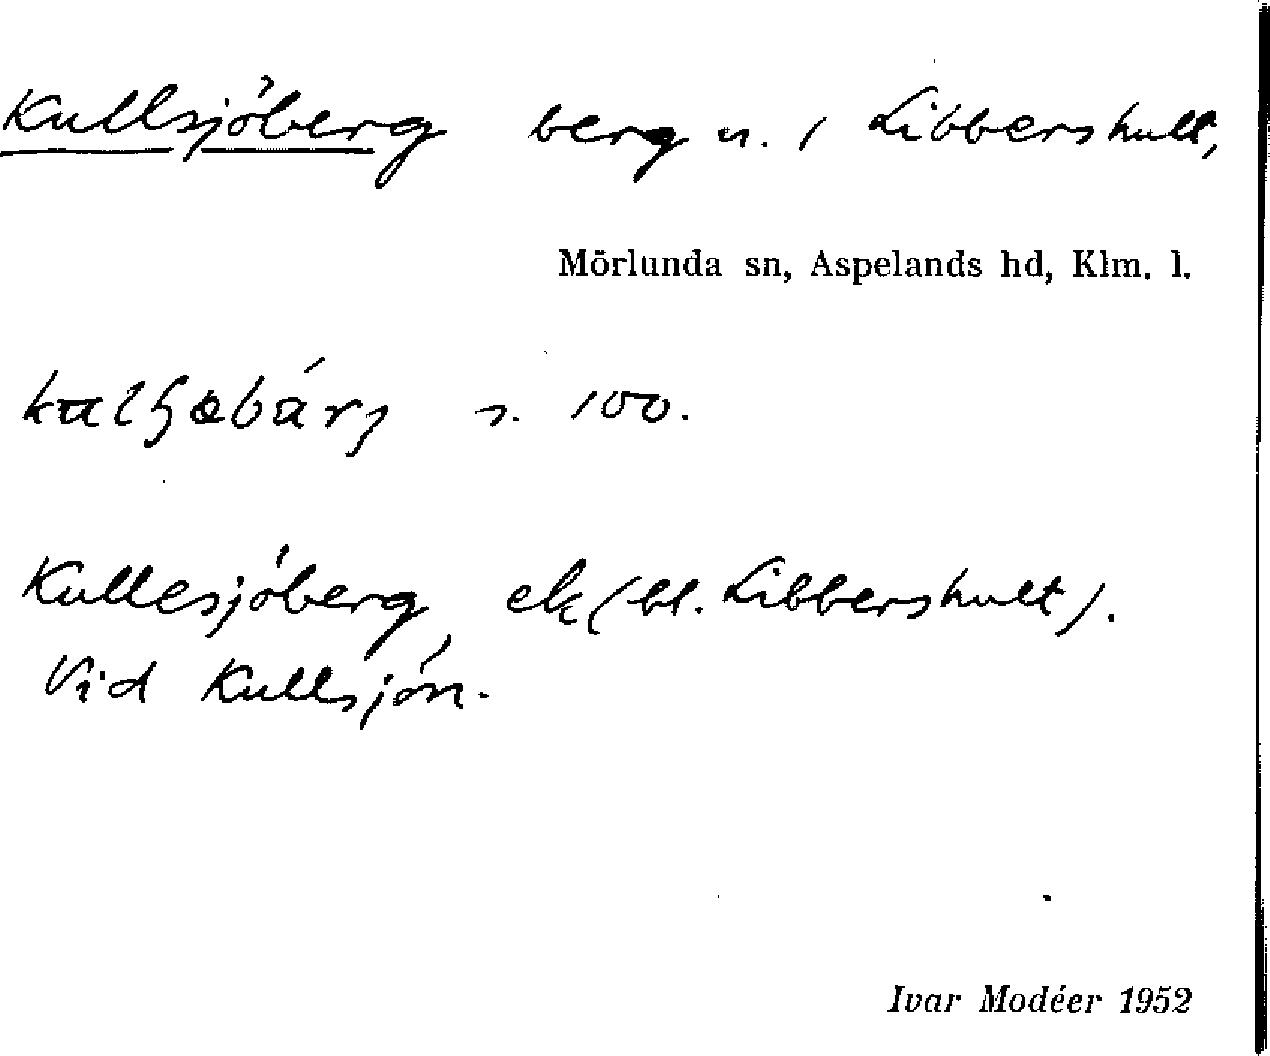 Kullsjöberg berg n. i Libbershult,
Mörlunda sn, Aspelands hd, Klm. l.
s. 100.
Kullesjöberg, ek (bl. Libbershult).
Vid Kullsjön.
Ivar Modéer 1952